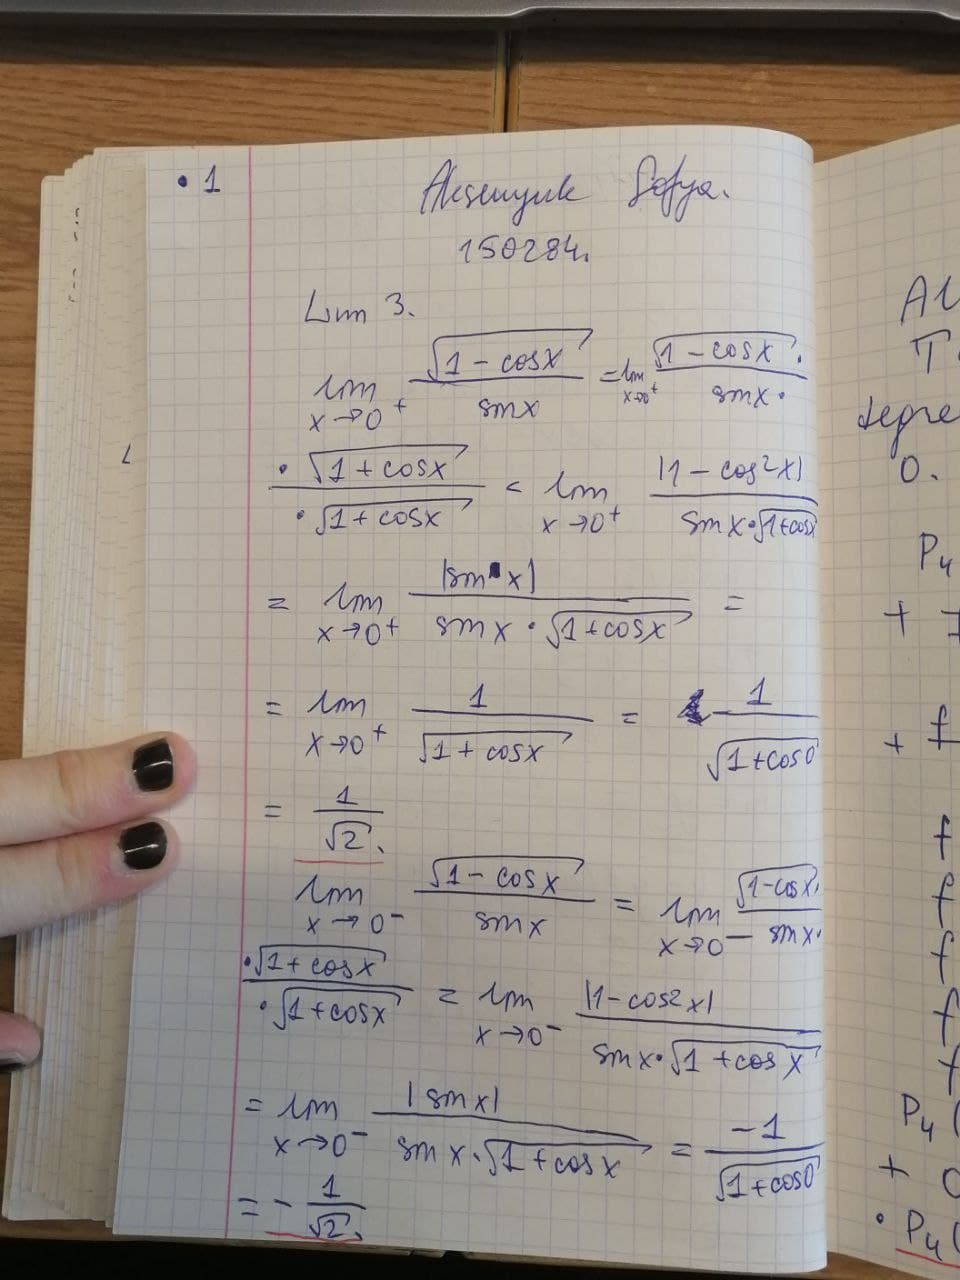 • 1
Aksenyuk Sofya.
150284.
Lim 3.
lim x→0⁺ √(1 - cosx) / sinx = lim x→0⁺ √(1 - cosx) · / sinx ·
· √(1 + cosx) / · √(1 + cosx) = lim x→0⁺ |1 - cos²x| / sinx · √(1+cosx)
= lim x→0⁺ |sin x| / sinx · √(1+cosx) =
= lim x→0⁺ 1 / √(1 + cosx) = 1 / √(1+cos0)
= 1 / √2.
lim x→0⁻ √(1 - cosx) / sinx = lim x→0⁻ √(1-cosx) · / sinx ·
· √(1 + cosx) / · √(1 + cosx) = lim x→0⁻ |1-cos²x| / sinx · √(1 + cosx)
= lim x→0⁻ |sinx| / sinx · √(1 + cosx) = -1 / √(1+cos0)
= - 1 / √2.
0.
P₄
+
+ f
f
f
f
f
f
P₄ (
+ 0
• P₄ (